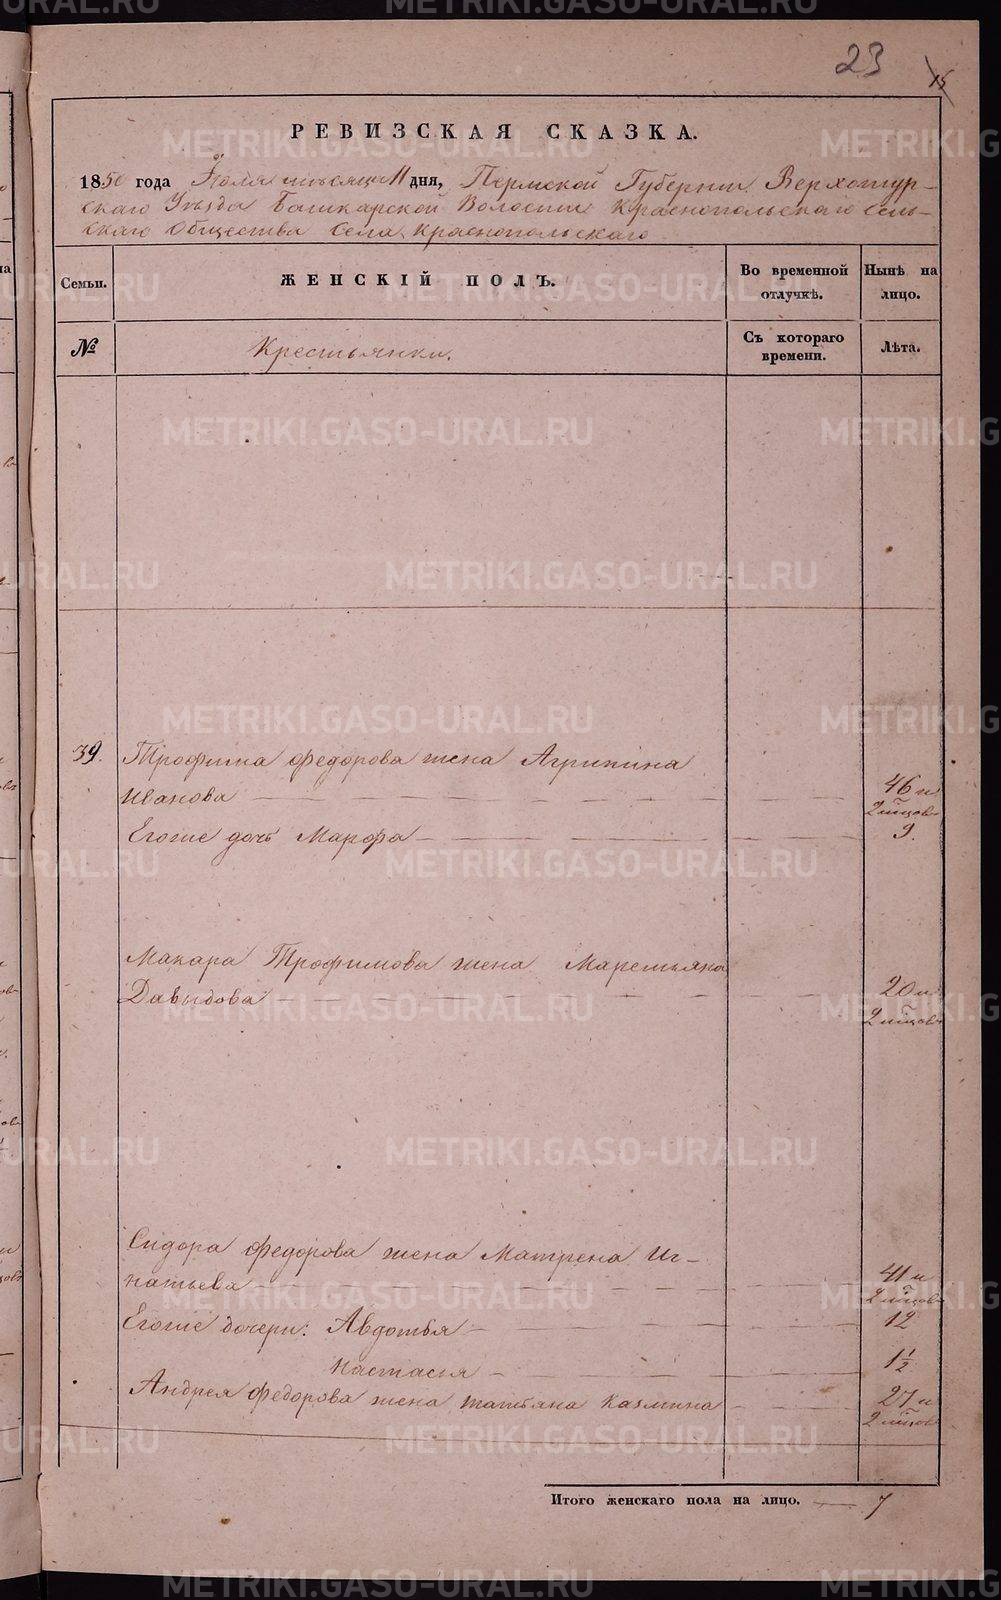 23
15
РЕВИЗСКАЯ СКАЗКА.
1850 года Юоля месяца 11 дня, Пермской Губернии Верхотур-
скаго Уезда Башкарской Волости Краснопольскаго Сель-
скаго Общества Села Краснопольскаго
Семьи.
ЖЕНСКІЙ ПОЛЪ.
Во временной отлучкѣ.
Нынѣ на лицо.
№
Крестьянки.
Съ котораго времени.
Лѣта.
39. Трофима Федорова жена Агрипина
Иванова 46 и
2 м͠цовъ
Егоже дочь Марфа 9.
Макара Трофимова жена Маремьяна
Давыдова 20 и
2 м͠цовъ
Сидора Федорова жена Матрена Иг-
натьева 41 и
2 м͠цовъ
Егоже дочери: Авдотья 12
Настасья 1 1/2
Андрея Федорова жена Татьяна Казмина 27 и
2 м͠цовъ
Итого женскаго пола на лицо. 7
METRIKI.GASO-URAL.RU